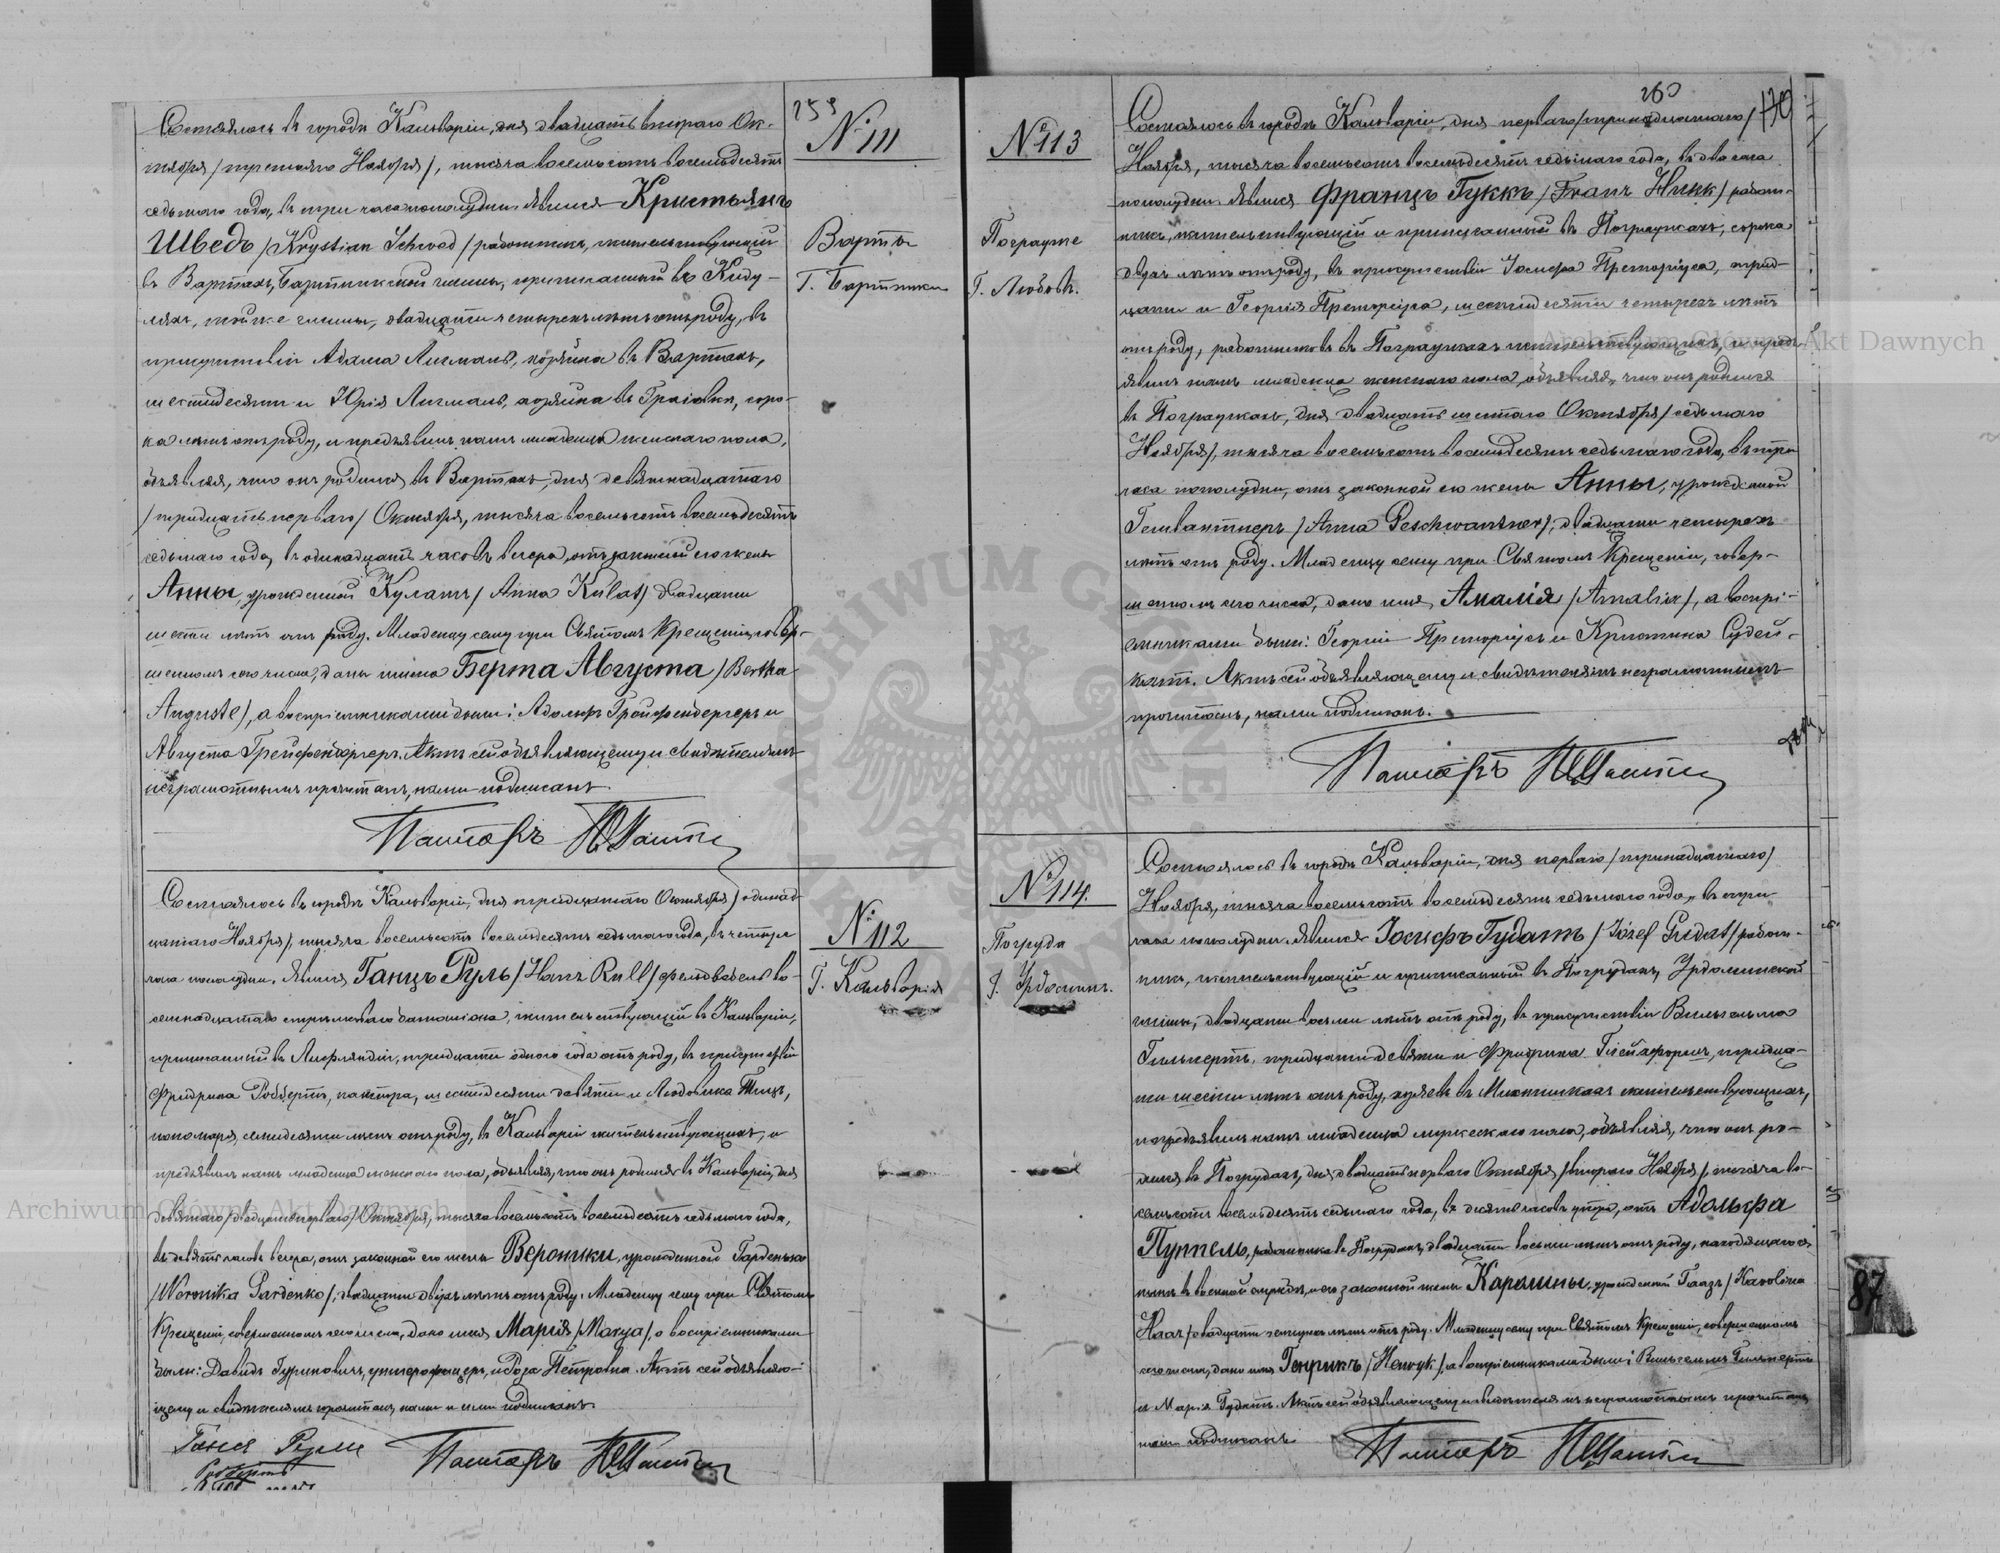 259
№ 111
Варты
Г. Бартники
Состоялось въ городѣ Кальваріи, дня двадцать втораго Ок-
тября /третьяго Ноября/, тысяча восемьсотъ восемьдесятъ
седьмаго года, въ три часа пополудни. Явился Кристьянъ
Шведъ /Krystian Schwed/ работникъ, жительствующій
въ Вартахъ, Бартникской гмины, приписанный въ Киду-
ляхъ, той же гмины, двадцати четырехъ лѣтъ отъ роду, въ
присутствіи Адама Лигмалъ, хозяина въ Вартахъ,
шестидесяти и Юрія Лигмалъ, хозяина въ Граіовки, соро-
ка лѣтъ отъ роду, и предъявилъ намъ младенца женскаго пола,
объявляя, что онъ родился въ Вартахъ, дня девятнадцатаго
/тридцать перваго/ Октября, тысяча восемьсотъ восемьдесятъ
седьмаго года, въ одинадцать часовъ вечера, отъ законной его жены
Анны, урожденной Кулатъ /Anna Kulat/ двадцати
шести лѣтъ отъ роду. Младенцу сему при Святомъ Крещеніи, совер-
шенномъ сего числа, даны имена Берта Августа /Bertha
Auguste/, а воспріемниками были: Адольфъ Грейфенбергеръ и
Августа Грейфенбергеръ. Актъ сей объявляющему и свидѣтелямъ
неграмотнымъ прочитанъ, нами подписанъ.
Пасторъ
№ 112
Г. Кальварія
Состоялось въ городѣ Кальваріи, дня тридцатаго Октября /одинад-
цатаго Ноября/, тысяча восемьсотъ восемьдесятъ седьмаго года, въ четыре
часа пополудни. Явился Ганцъ Руль /Hanz Rull/ фельдфебель во-
семнадцатаго стрѣлковаго баталіона, жительствующій въ Кальваріи,
приписанный въ Лифляндіи, тридцати одного года отъ роду, въ присутствіи
Фридриха Робертъ, кантора, шестидесяти девяти и Людовика Тицъ,
пономаря, семидесяти лѣтъ отъ роду, въ Кальваріи жительствующихъ, и
предъявилъ намъ младенца женскаго пола, объявляя, что онъ родился въ Кальваріи, дня
девятаго /двадцать перваго/ Октября, тысяча восемьсотъ восемьдесятъ седьмаго года,
въ девять часовъ вечера, отъ законной его жены Вероники, урожденной Гарденько
/Weronika Gardenko/, двадцати двухъ лѣтъ отъ роду. Младенцу сему при Святомъ
Крещеніи, совершенномъ сего числа, дано имя Марія /Marya/, а воспріемниками
были: Давидъ Гуриновичъ, унтерофицеръ, и Петровна. Актъ сей объявляю-
щему и свидѣтелямъ прочитанъ, нами и ими подписанъ.
Ганса Руля
Робертъ
Пасторъ
260
170
№ 113
Пограуже
Г. Любовъ.
Состоялось въ городѣ Кальваріи, дня перваго /тринадцатаго/
Ноября, тысяча восемьсотъ восемьдесятъ седьмаго года, въ два часа
пополудни. Явился Францъ Гуккъ /Franz Hukk/ работ-
никъ, жительствующій и приписанный въ Пограужахъ, сорока
двухъ лѣтъ отъ роду, въ присутствіи Іосифа Преторіуса, трид-
цати и Георгія Преторіуса, шестидесяти четырехъ лѣтъ
отъ роду, работниковъ въ Пограужахъ жительствующихъ, и предъ-
явилъ намъ младенца женскаго пола, объявляя, что онъ родился
въ Пограужахъ, дня двадцать шестаго Октября /седьмаго
Ноября/, тысяча восемьсотъ восемьдесятъ седьмаго года, въ три
часа пополудни, отъ законной его жены Анны, урожденной
Гешвантнеръ /Anna Geschwantner/, двадцати четырехъ
лѣтъ отъ роду. Младенцу сему при Святомъ Крещеніи, совер-
шенномъ сего числа, дано имя Амалія /Amalia/, а воспрі-
емниками были: Георгій Преторіусъ и Кристина Судей-
катъ. Актъ сей объявляющему и свидѣтелямъ неграмотнымъ
прочитанъ, нами подписанъ.
Пасторъ
№ 114.
Погруда
Г. Урдоминъ.
Состоялось въ городѣ Кальваріи, дня перваго /тринадцатаго/
Ноября, тысяча восемьсотъ восемьдесятъ седьмаго года, въ три
часа пополудни. Явился Іосифъ Гудатъ /Józef Gudat/ работ-
никъ, жительствующій и приписанный въ Погрудахъ, Урдоминской
гмины, двадцати восьми лѣтъ отъ роду, въ присутствіи Вильгельма
Гильпертъ, тридцати девяти и Фридриха, тридца-
ти шести лѣтъ отъ роду, хозяевъ въ жительствующихъ,
и предъявилъ намъ младенца мужескаго пола, объявляя, что онъ ро-
дился въ Погрудахъ, дня двадцать перваго Октября /втораго Ноября/ тысяча во-
семьсотъ восемьдесятъ седьмаго года, въ десять часовъ утра, отъ Адольфа
Пуппель, работника въ Погрудахъ, двадцати восьми лѣтъ отъ роду, находящагося
нынѣ въ военной службѣ, и его законной жены Каролины, урожденной Гаазъ /Karolina
Haaz/ двадцати четырехъ лѣтъ отъ роду. Младенцу сему при Святомъ Крещеніи, совершенномъ
сего числа, дано имя Генрикъ /Henryk/, а воспріемниками были: Вильгельмъ Гильпертъ
и Марія Гудатъ. Актъ сей объявляющему и свидѣтелямъ неграмотнымъ прочитанъ,
нами подписанъ.
Пасторъ
87
Archiwum Główne Akt Dawnych
Archiwum Główne Akt Dawnych